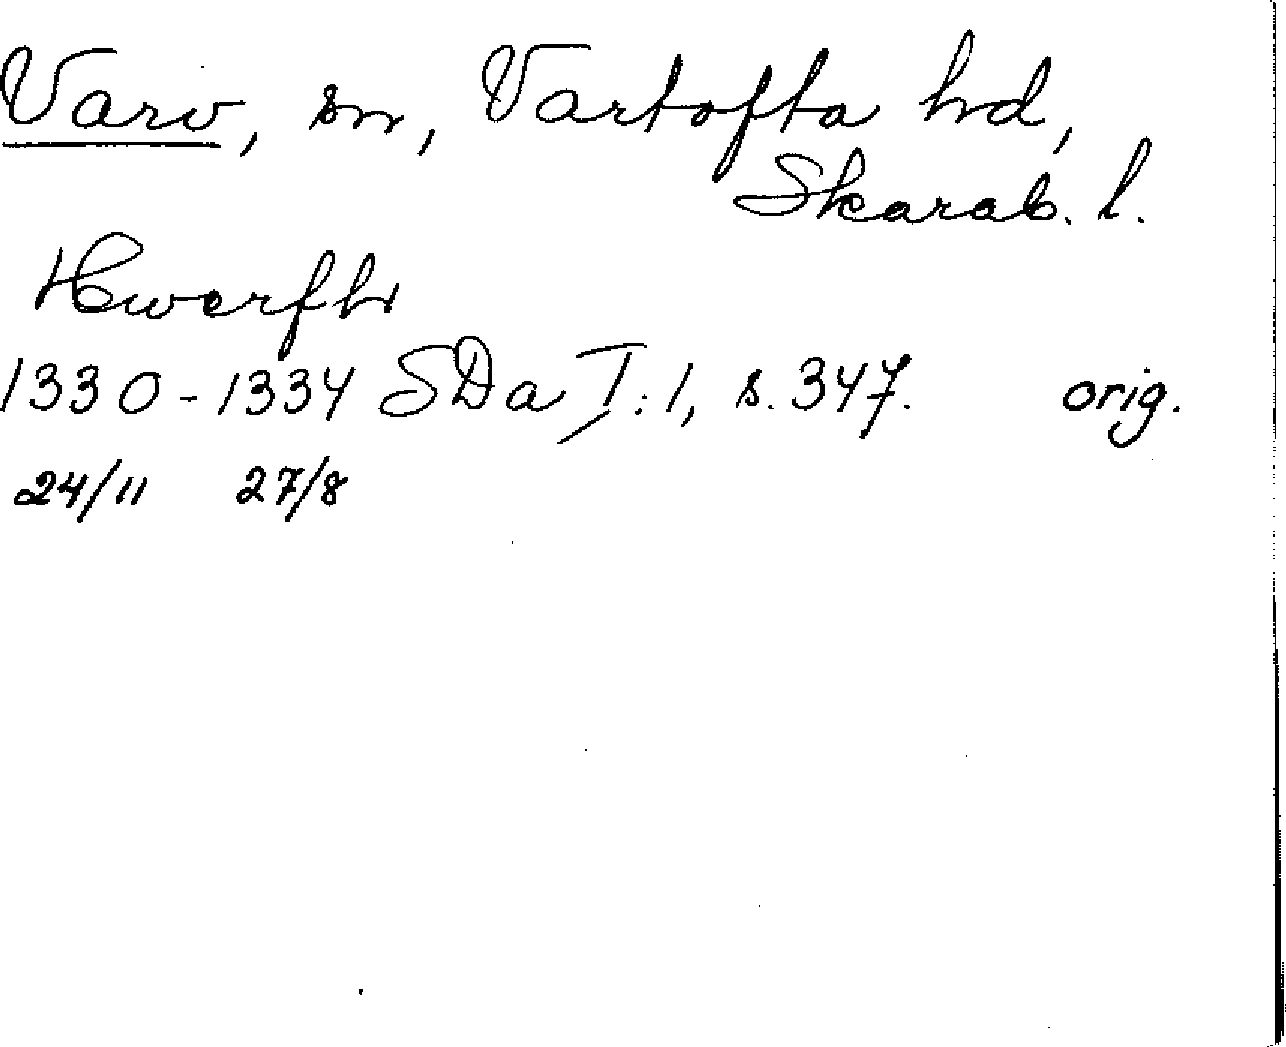 Varv, sn, Vartofta hd,
Skarab. l.
Hwerfh
1330-1334 SDa I:1, s. 347. orig.
24/11 27/8